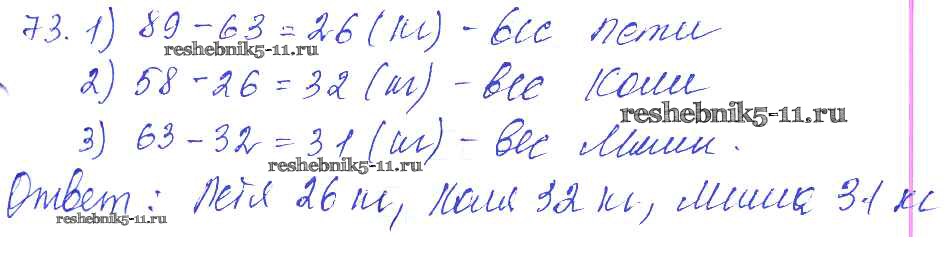 73. 1) 89 - 63 = 26 (кг) - вес Пети
reshebnik5-11.ru
2) 58 - 26 = 32 (кг) - вес Коли
reshebnik5-11.ru
3) 63 - 32 = 31 (кг) - вес Миши.
reshebnik5-11.ru
Ответ: Петя 26 кг, Коля 32 кг, Миша 31 кг
reshebnik5-11.ru